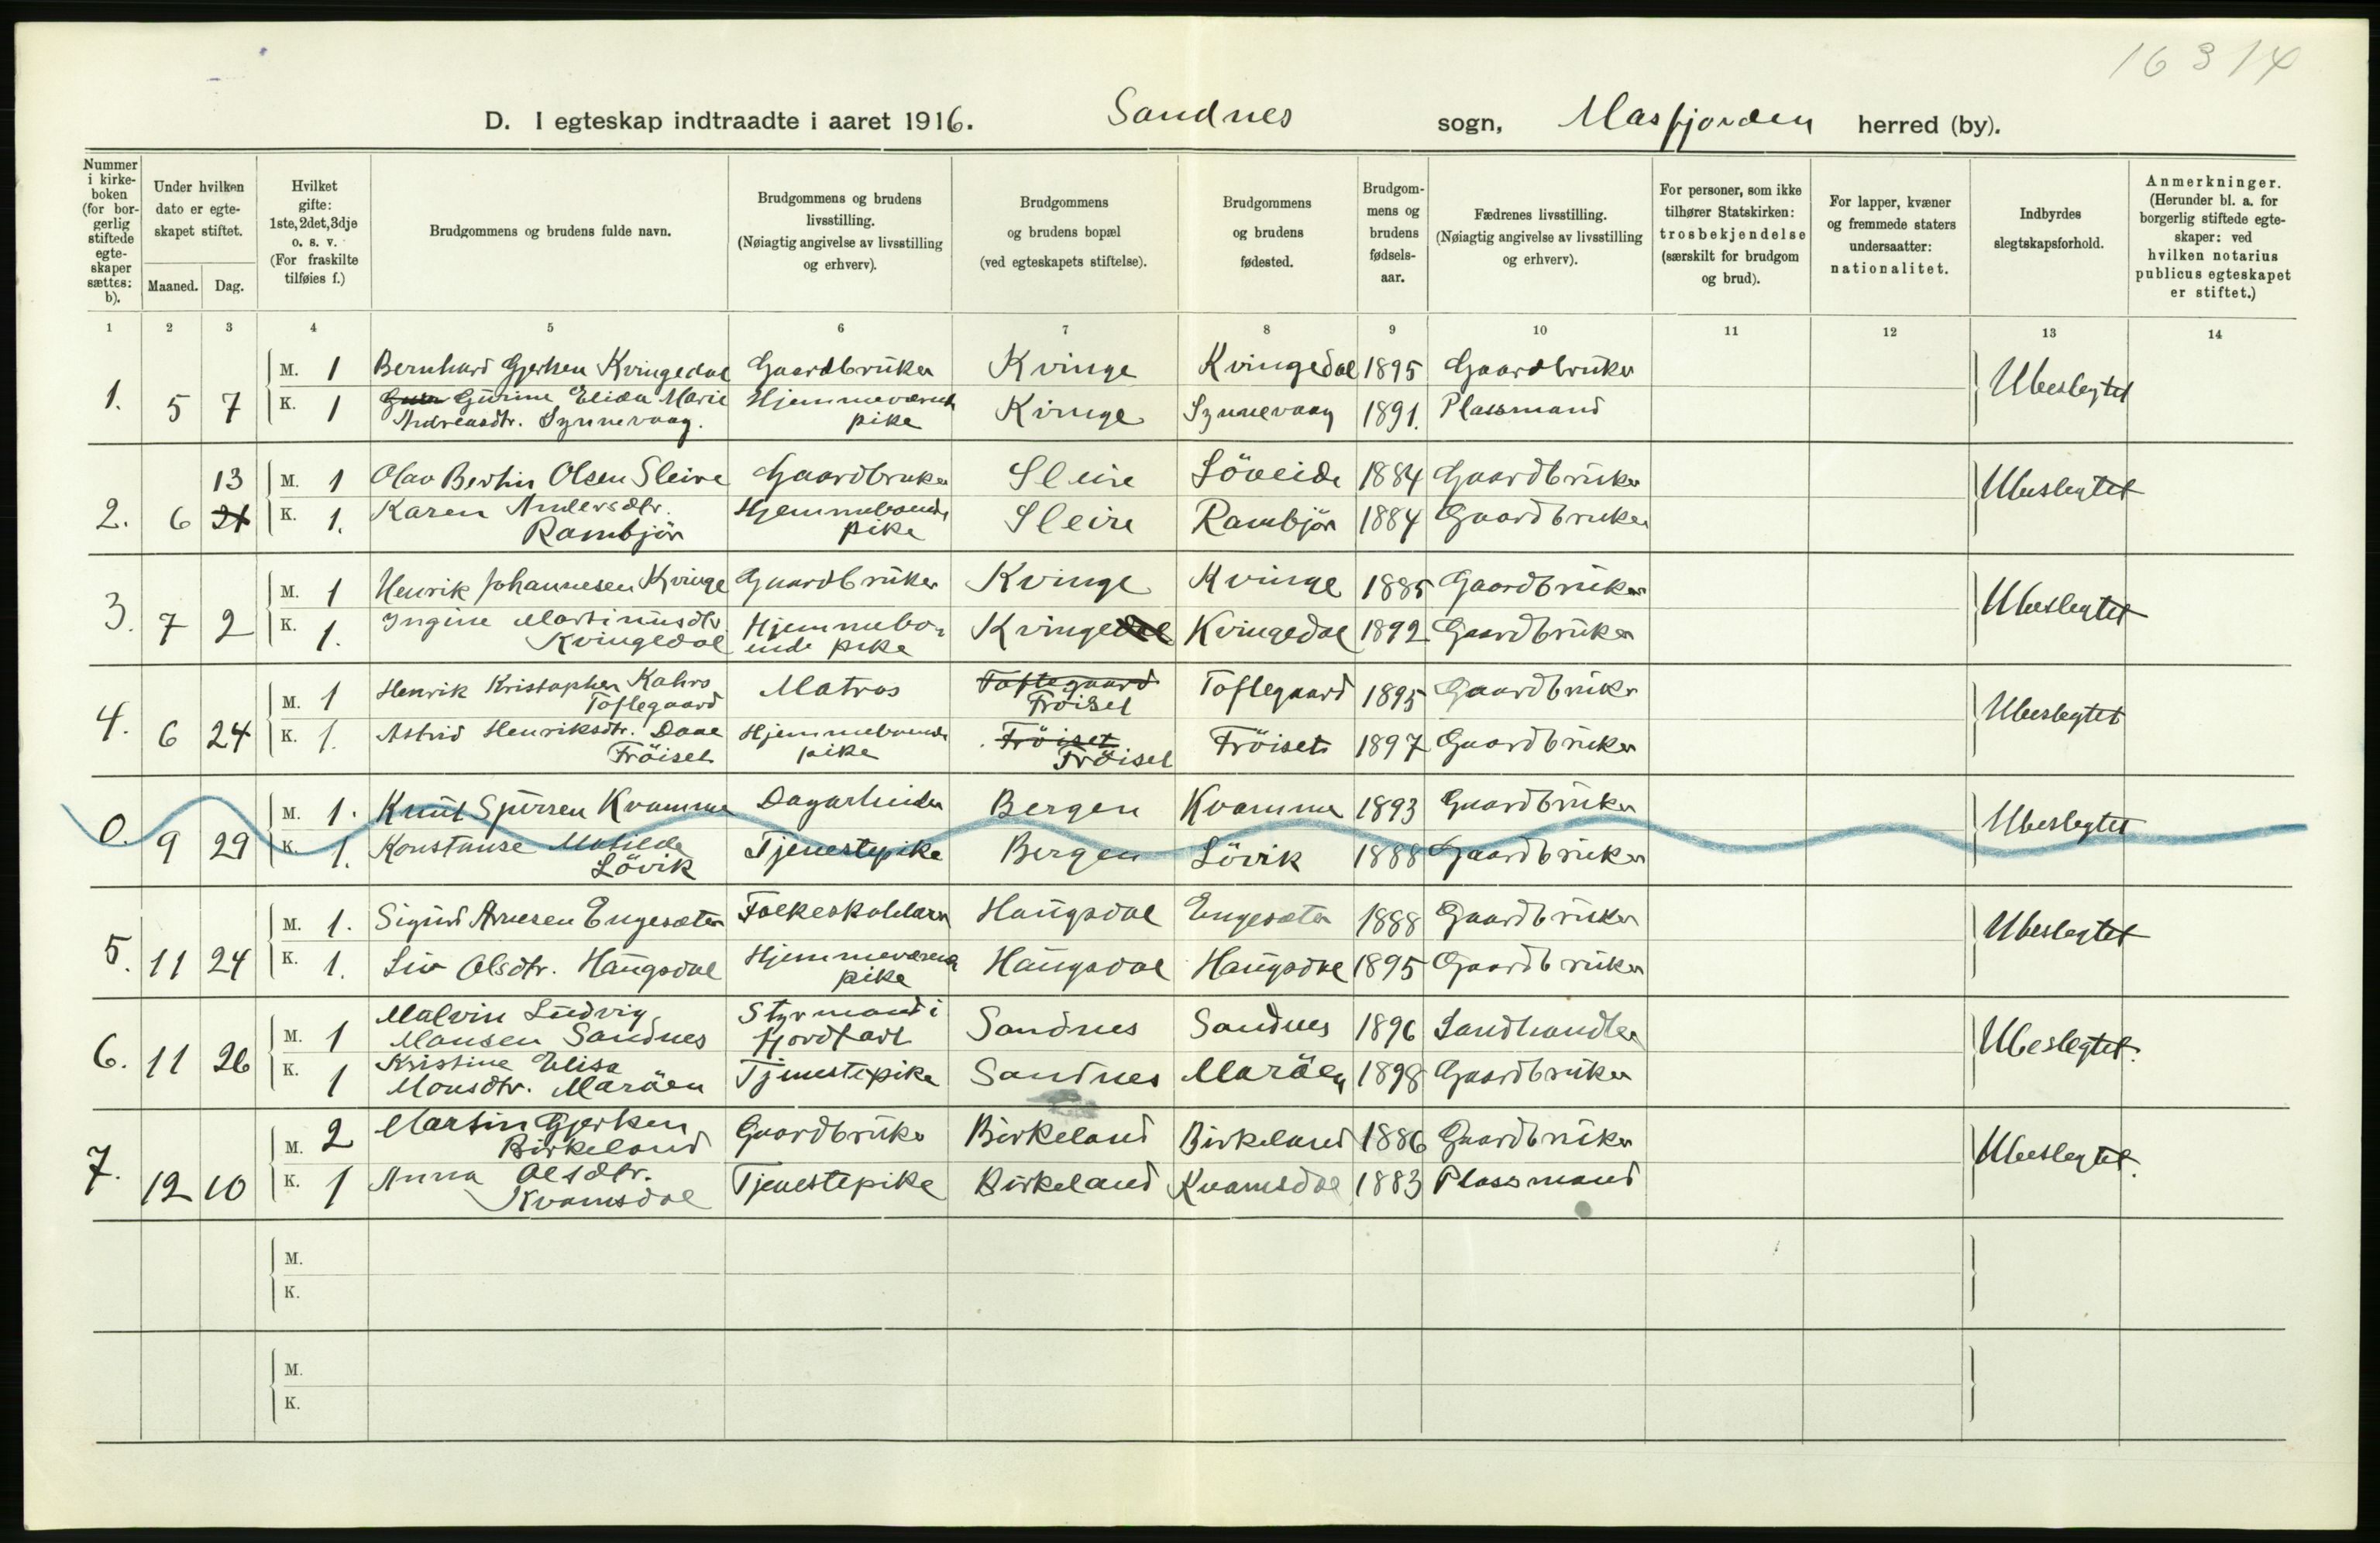 16314
D. I egteskap indtraadte i aaret 1916. Sandnes sogn, Masfjorden herred (by).
Nummer i kirke-boken (for bor-gerlig stiftede egte-skaper sættes: b).
Under hvilken dato er egte-skapet stiftet.
Maaned. Dag.
Hvilket gifte: 1ste, 2det, 3dje o. s. v. (For fraskilte tilføies f.)
Brudgommens og brudens fulde navn.
Brudgommens og brudens livsstilling. (Nøiagtig angivelse av livsstilling og erhverv).
Brudgommens og brudens bopæl (ved egteskapets stiftelse).
Brudgommens og brudens fødested.
Brudgom-mens og brudens fødsels-aar.
Fædrenes livsstilling. (Nøiagtig angivelse av livsstilling og erhverv).
For personer, som ikke tilhører Statskirken: trosbekjendelse (særskilt for brudgom og brud).
For lapper, kvæner og fremmede staters undersaatter: nationalitet.
Indbyrdes slegtskapsforhold.
Anmerkninger. (Herunder bl. a. for borgerlig stiftede egte-skaper: ved hvilken notarius publicus egteskapet er stiftet.)
1 2 3 4 5 6 7 8 9 10 11 12 13 14
M. 1 Bernhard Gjertsen Kvingedal Gaardbruker Kvinge Kvingedal 1895 Gaardbruker Ubeslegtet
1. 5 7 K. 1 Gurine Elida Marie Andreasdtr. Synnevaag. Hjemmeværende pike Kvinge Synnevaag 1891. Plassmand
13 M. 1 Olav Bertin Olsen Sleire Gaardbruker Sleire Løveide 1884 Gaardbruker Ubeslegtet
2. 6 21 K. 1. Karen Andersdtr. Rambjör Hjemmeboende pike Sleire Rambjör 1884 Gaardbruker
M. 1 Henrik Johannesen Kvinge Gaardbruker Kvinge Kvinge 1885 Gaardbruker Ubeslegtet
3. 7 2 K. 1. Ingine Martinusdtr Kvingedal Hjemmebo-ende pike Kvingedal Kvingedal 1892 Gaardbruker
M. 1 Henrik Kristopher Kahrs Toftegaard Matros Toftegaard Fröiset Toftegaard 1895 Gaardbruker Ubeslegtet
4. 6 24 K. 1. Astrid Henriksdtr. Daae Fröiset Hjemmeboende pike Fröiset Fröiset Fröiset 1897 Gaardbruker
M. 1. Knut Sjursen Kvamme Dagarbeider Bergen Kvamme 1893 Gaardbruker Ubeslegtet
0. 9 29 K. 1. Konstanse Matilde Lövik Tjenestepike Bergen Lövik 1888 Gaardbruker
M. 1. Sigurd Arnesen Engesæter Folkeskolelærer Haugsdal Engesæter 1888 Gaardbruker Ubeslegtet
5. 11 24 K. 1. Liv Olsdtr. Haugsdal Hjemmeværende pike Haugsdal Haugsdal 1895 Gaardbruker
M. 1 Malvin Ludvig Monsen Sandnes Styrmand i fjordfart Sandnes Sandnes 1896 Landhandler Ubeslegtet.
6. 11 26 K. 1 Kristine Elisa Monsdtr. Maröen Tjenestepike Sandnes Maröen 1898 Gaardbruker
M. 2 Martin Gjertsen Birkeland Gaardbruker Birkeland Birkeland 1886 Gaardbruker Ubeslegtet.
7. 12 10 K. 1 Anna Olsdtr. Kvamsdal Tjenestepike Birkeland Kvamsdal 1883 Plassmand
M.
K.
M.
K.